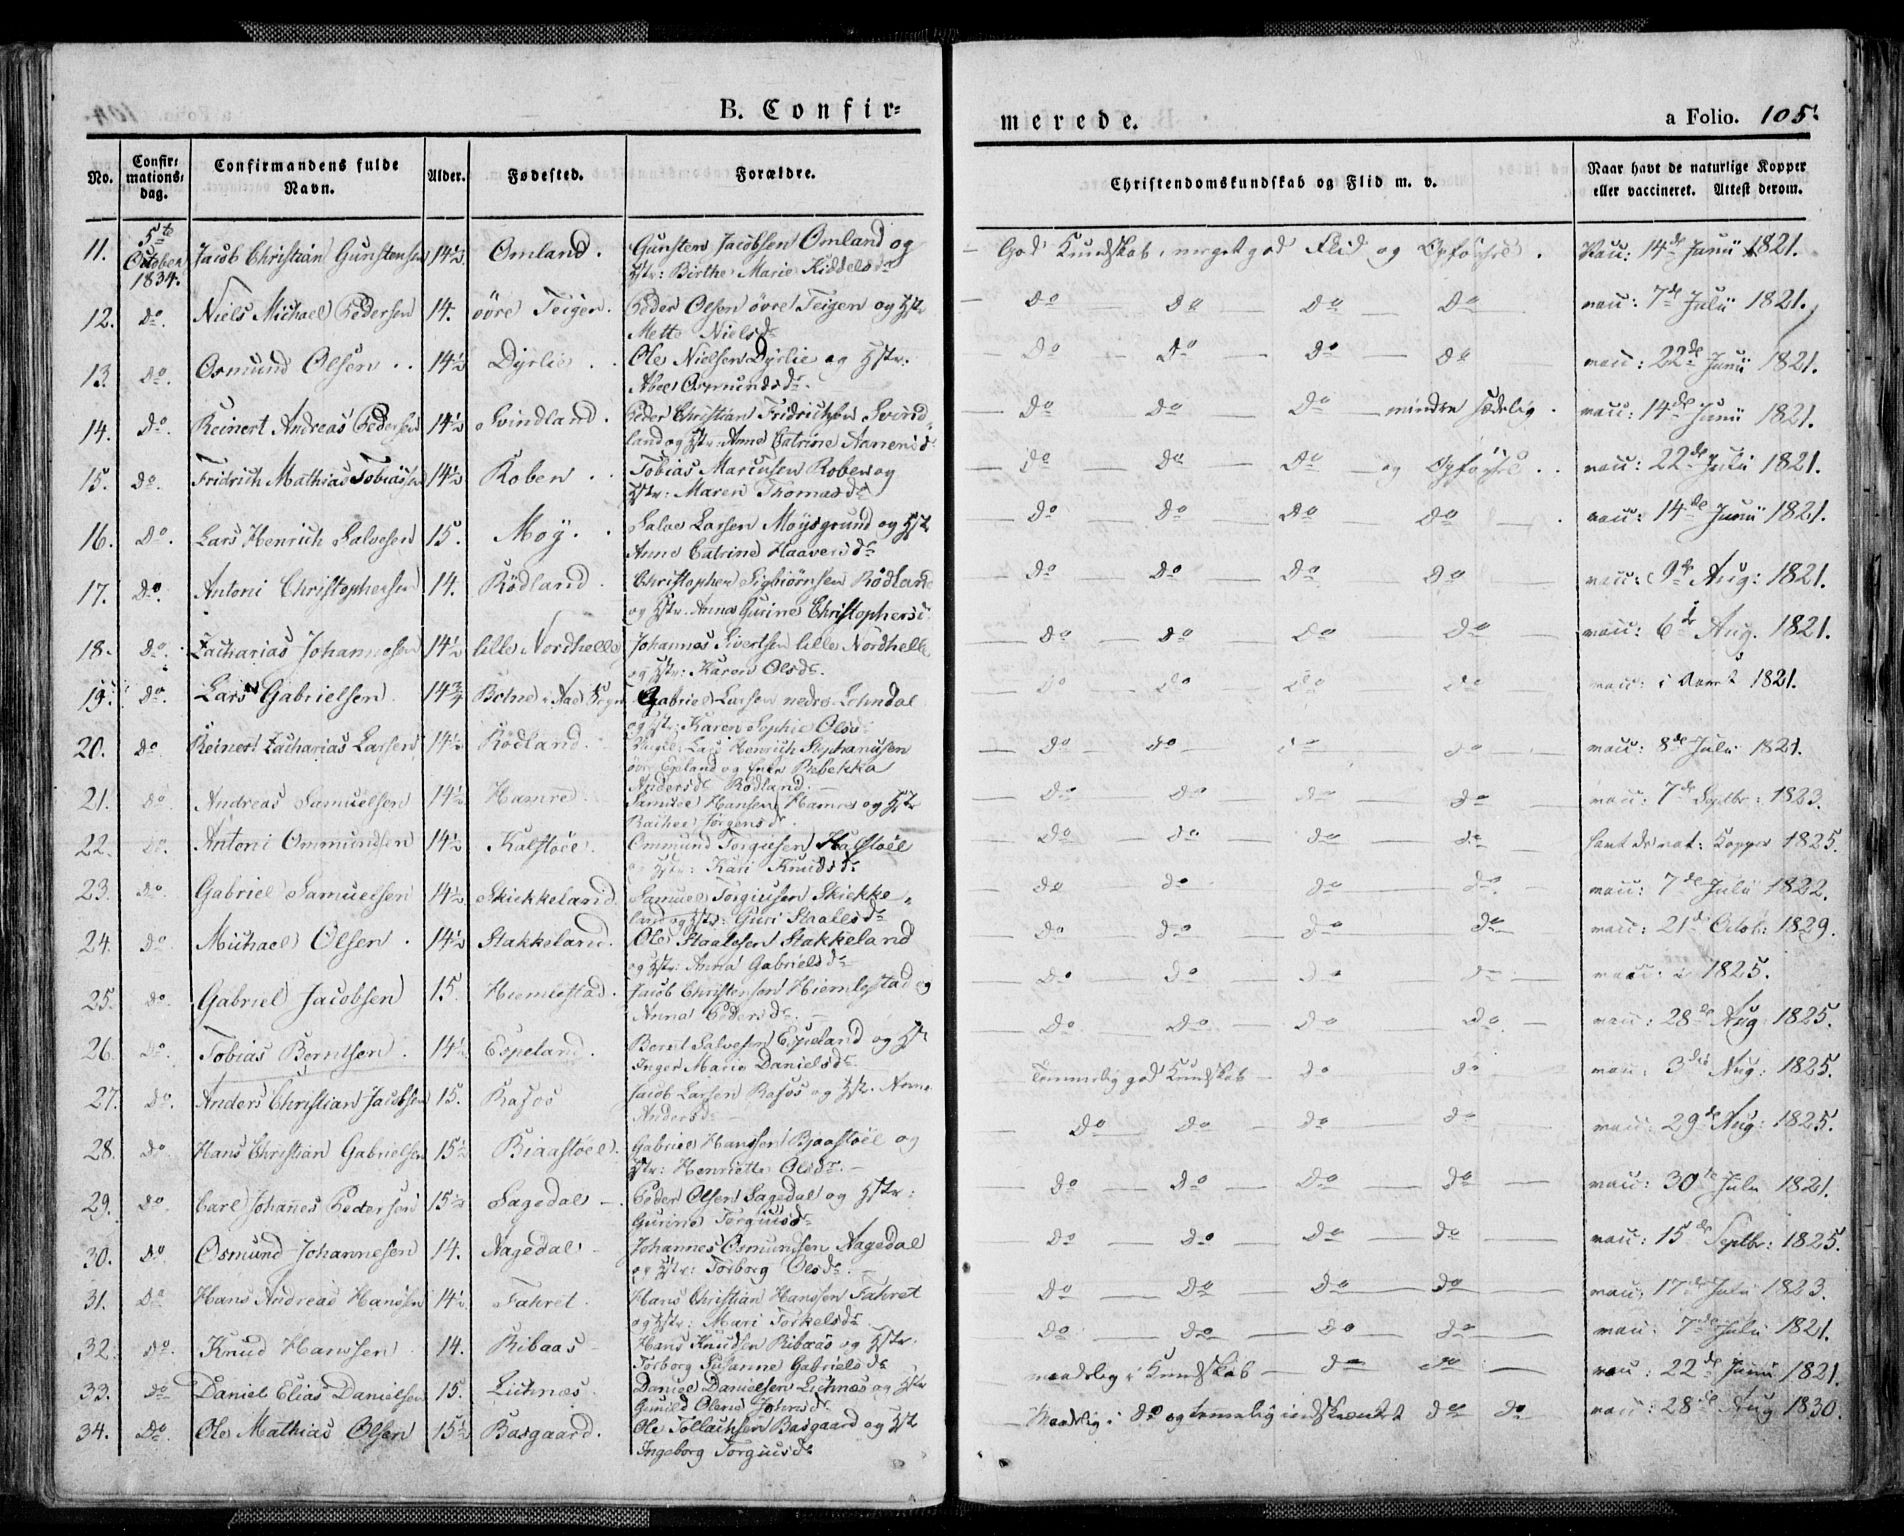 B. Confir=
merede.
a Folio. 105.
No. Confir: mations: dag. Confirmandens fulde Navn. Alder. Fødested. Forældre. Christendomskundskab og Flid m. v. Naar havt de naturlige Kopper eller vaccineret. Attest derom.
11. 5te October 1834. Jacob Christian Gunstensen 14½ Omland. Gunsten Jacobsen Omland og Hstr: Birthe Marie Kiddelsdr God Kundskab, meget god Flid og Opførsel. Vacc: 14de Junii 1821.
12. do. Niels Michael Pedersen 14. øvre Teigen. Peder Olsen øvre Teigen og Hstr Mette Nielsdr do do do do vacc: 7de Julii 1821.
13. do. Osmund Olsen 14½ Dyrlie Ole Nielsen Dyrlie og Hstr. Abel Osmundsdr. do do do do vacc: 22de Junii 1821.
14. do. Reinert Andreas Pedersen 14½ Svindland. Peder Christian Fridrichsen Svindland og Hstr: Anne Catrine Aanensd. do do do mindre sædelig. vacc: 14de Junii 1821.
15. do. Fridrich Mathias Tobiassen 14½ Roben Tobias Marcusen Roben og Hstr: Maren Thomasdr do do do og Opførsel vacc: 22de Julii 1821.
16. do. Lars Henrich Salvesen 15. Moy. Salve Larsen Moysgrund og Hstr Anne Catrine Haaversdr do do do do vacc: 14de Junii 1821.
17. do. Antoni Christophersen 14. Rödland. Christopher Sigbiörnsen Rödland og Hstr. Anna Gurine Christophersd. do do do do vacc: 9de Aug: 1821.
18. do. Zacharias Johannesen 14½ lille Nordhelle Johannes Sivertsen lille Nordhelle og Hstr: Karen Olsdr. do do do do vacc: 6te Aug. 1821.
19. do. Lars Gabrielsen 14¾ Gabriel Larsen nedre og Hstr: Karen Sophie Olsd. do do do do vacc: i 1821.
20. do Reinert Zacharias Larsen 14½ Rödland. Lars Henrich Stephanusen øvre Egeland og Rebekka Andersdr Rödland. do do do do vacc: 8de Julii 1821.
21. do Andreas Samuelsen 14½ Hamre. Samuel Hansen Hamre og Hstr Jörgensdr. do do do do vacc: 7de Septbr: 1823.
22. do. Antoni Ommundsen 14½ Kalstöel. Ommund Torgiesen Kalstöel og Hstr: Kari Knudsdr do do do do havt de nat: Kopper 1825.
23. do. Gabriel Samuelsen 14½ Skiekkeland. Samuel Torgiusen Skiekkeland og Hstr: Guri Staalesdr do do do do vacc: 7de Julii 1822.
24. do. Michael Olsen. 14½ Stakkeland. Ole Staalesen Stakkeland og Hstr: Anna Gabrielsdr do do do do vacc: 21de Octob: 1829.
25. do. Gabriel Jacobsen 15. Hiemlestad. Jacob Christensen Hiemlestad og Anna Pedersdr. do do do do vacc: i 1825.
26. do. Tobias Berntsen. 14½ Espeland. Bernt Salvesen Espeland og Hstr Inger Marie Danielsdr do do do do vacc: 28de Aug: 1825.
27. do. Anders Christian Jacobsen 15. Rafos Jacob Larsen Rafos og Hstr. Anne Andersdr Temmelig god Kundskab do do vacc: 3die Aug: 1825.
28. do. Hans Christian Gabrielsen 15½ Biaastöel. Gabriel Hanssen Bjaastöel og Hstr: Henriette Olsdr. do do do do vacc: 29de Aug: 1825.
29. do. Carl Johannes Pedersen 15½ Sagedal Peder Olsen Sagedal og Hstr: Gurine Torgiusdr do do do do vacc: 30te Julii 1821.
30. do. Osmund Johannesen 14. Aagedal Johannes Osmundsen Aagedal og Hstr: Torborg Olsdr. do do do do vacc: 15de Septbr: 1825.
31. do Hans Andreas Hanssen 14½ Fahret. Hans Christian Hanssen Fahret og Hstr: Mari Torkelsdr. do do do do vacc: 17de Julii 1823.
32. do. Knud Hanssen 14. Ribaas Hans Knudsen Ribaas og Hstr. Torborg Susanne Gabrielsdr do do do do vacc: 7de Julii 1821.
33. do Daniel Elias Danielsen 15. Lichnæs. Daniel Danielsen Lichnæs og Hstr Gunild Olene Johnsdr. maadelig i Kundskab do do vacc: 22de Junii 1821.
34. do. Ole Mathias Olsen 15½ Basgaard. Ole Tollachsen Basgaard og Hstr Ingeborg Torgiusdr Maadelig i do og temmelig indskrænket do do vacc: 28de Aug 1830.